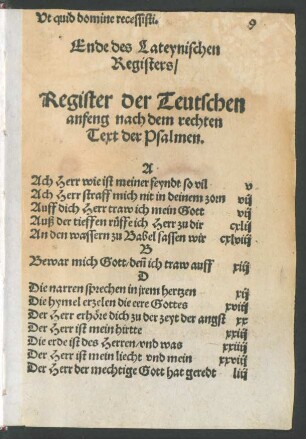 Ut quid domine recessisti. 9
Ende des Lateynischen
Registers/
Register der Teutschen
anfeng nach dem rechten
Text der Psalmen.
A
Ach Herr wie ist meiner feyndt so vil v
Ach Herr straff mich nit in deinem zorn vij
Auff dich Herr traw ich mein Gott vij
Auß der tieffen rüffe ich Herr zu dir cxlij
An den wassern zu Babel sassen wir cxlviij
B
Bewar mich Gott/deñ ich traw auff xiij
D
Die narren sprechen in jrem hertzen xij
Die hymel erzelen die ere Gottes xviij
Der Herr erhöre dich zu der zeyt der angst xx
Der Herr ist mein hirtte xxiij
Die erde ist des Herren/vnd was xxiiij
Der Herr ist mein liecht vnd mein xxviij
Der Herr der mechtige Gott hat geredt liij